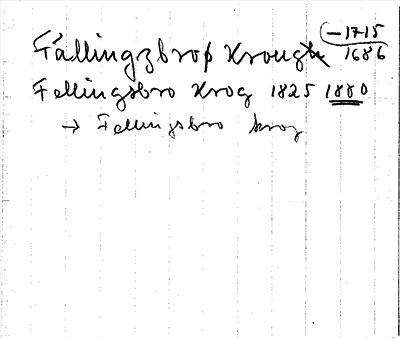 (-1715
Fällingzbroß Kroug 1686
Fellingsbro Krog 1825 1880
→ Fellingsbro krog